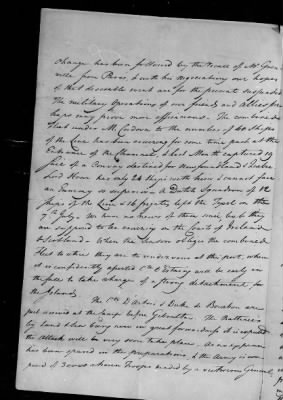 change has been followed by the recall of Mr Gren
ville from Paris, & with his negociations our hopes
of that desirable event are for the present suspended
The military operations of our friends and Allies per
haps may prove more efficacious. The combined
Fleet under M. Cordova to the number of 40 ships
of the Line has been cruizing for some time past at the
Entrance of the Channel, & last Month captured 19
sail of a Convoy destined for Newfoundland & Quebec
Lord Howe has only 24 ships with him & cannot face
an Enemy so superior. A Dutch Squadron of 12
ships of the Line & 16 frigates left the Texel on the
7th July. We have no news of them since, but they
are supposed to be cruizing on the Coasts of Ireland
& Scotland. When the Season obliges the combined
Fleet to retire they are to rendezvous at this port, when
it is confidently asserted Ct d'Estaing will be early in
the to take charge of a strong detachment, for
the Islands.
The Cte d'Artois & Duke de Bourbon are
just arrived at the Camp before Gibraltar. The Batteries
by land & Sea being now in great forwardness it is expected
the Attack will be very soon take place. As no expence
has been spared in the preparations, & the Army is com
posed of 30000 chosen Troops headed by a victorious General,